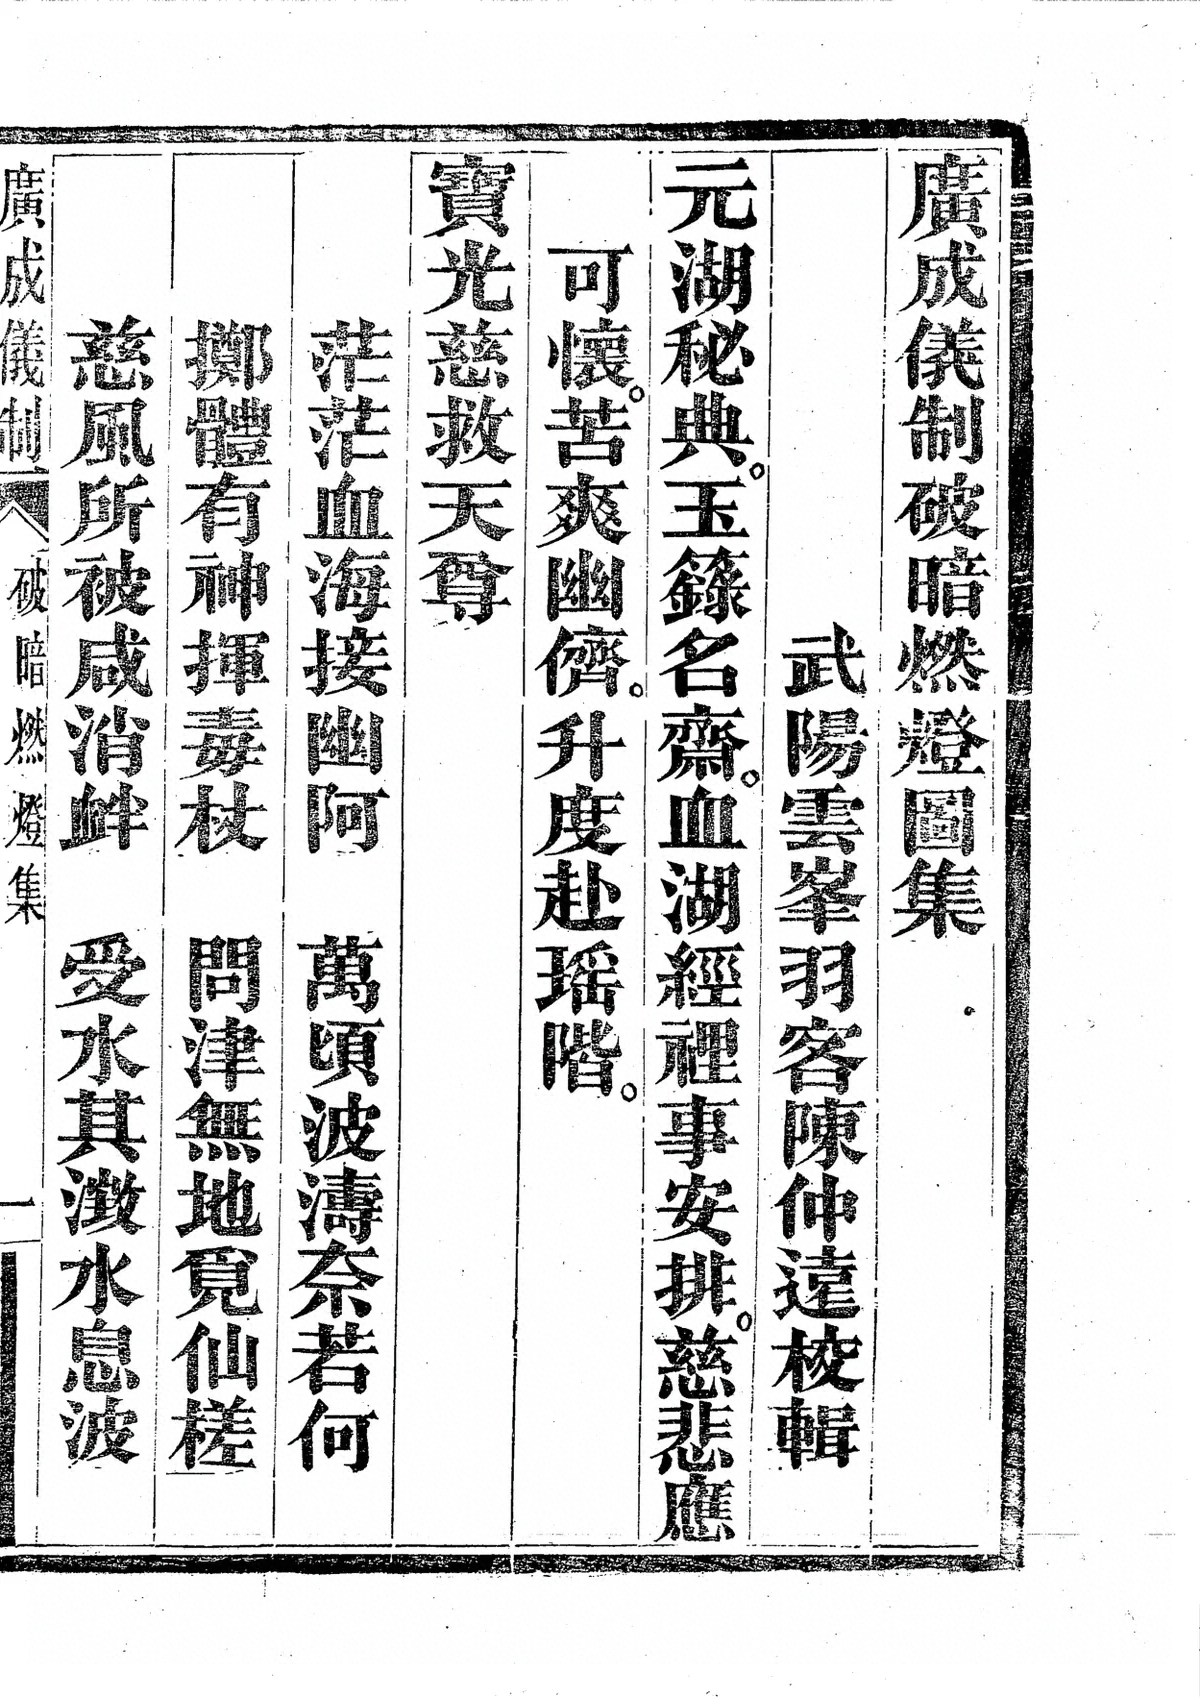 廣成儀制破暗燃燈圖集
武陽雲峯羽客陳仲遠校輯
元湖秘典。玉籙名齋。血湖經裡事安排。慈悲應
可懷。苦爽幽儕。升度赴瑶階。
寶光慈救天尊
茫茫血海接幽阿　萬頃波濤奈若何
擲體有神揮毒杖　問津無地覓仙槎
慈風所被咸消衅　受水其澂水息波
廣成儀制　破暗燃燈集　一